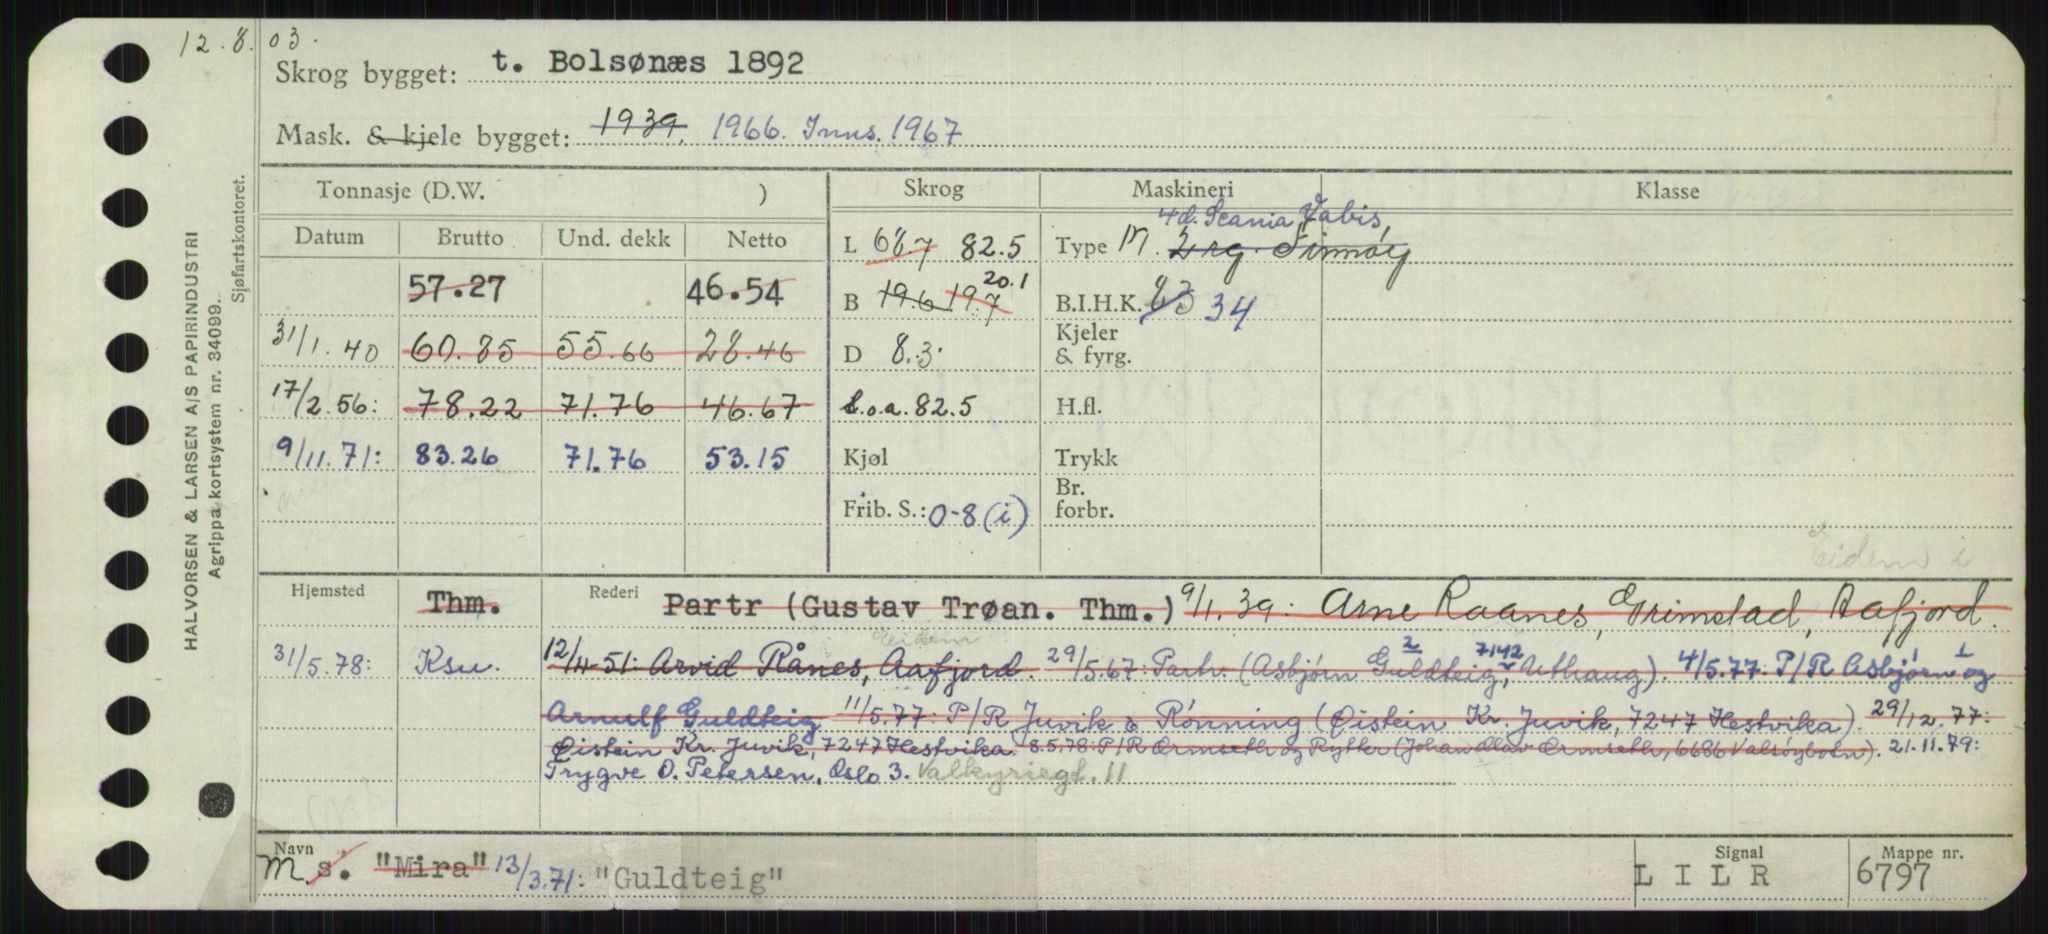 12.8.03.
Skrog bygget: t. Bolsønæs 1892
Mask. & kjele bygget: 1939. 1966. Inns. 1967
HALVORSEN & LARSEN A/S PAPIRINDUSTRI
Agrippa kortsystem nr. 34099.
Sjøfartskontoret.
Tonnasje (D.W. ) Skrog Maskineri Klasse
Datum Brutto Und. dekk Netto
57.27 46.54
31/1.40 60.85 55.66 28.46
17/2.56: 78.22 71.76 46.67
9/11.71: 83.26 71.76 53.15
L 68.7 82.5
B 19.6 19.7 20.1
D 8.3.
L.o.a. 82.5
Kjøl
Frib. S.: 0-8 (i)
4d. Scania Vabis,
Type M. 2 rg. Finnøy
B.I.H.K. 23 34
Kjeler
& fyrg.
H.fl.
Trykk
Br.
forbr.
Eidem i
Hjemsted Thm. Rederi Partr (Gustav Trøan. Thm.) 9/1.39: Arne Raanes, Grimstad, Aafjord.
Eidem
31/5.78: Ksu. 12/11-51: Arvid Rånes, Aafjord. 29/5.67: Partr. (Asbjørn Guldteig, 7142 Uthaug). 4/5.77: P/R Asbjørn og
Arnulf Guldteig 11/5.77: P/R Juvik & Rønning (Øistein Kr. Juvik, 7247 Hestvika). 29/12.77:
Øistein Kr. Juvik, 7247 Hestvika. 8.5.78: P/R Ormseth og Rytter (Johan Olav Ormseth, 6686 Valsøybotn). 21.11.79:
Trygve O. Petersen, Oslo 3. Valkyriegt. 11
Navn Signal Mappe nr.
M s. "Mira" 13/3.71: "Guldteig" L I L R 6797